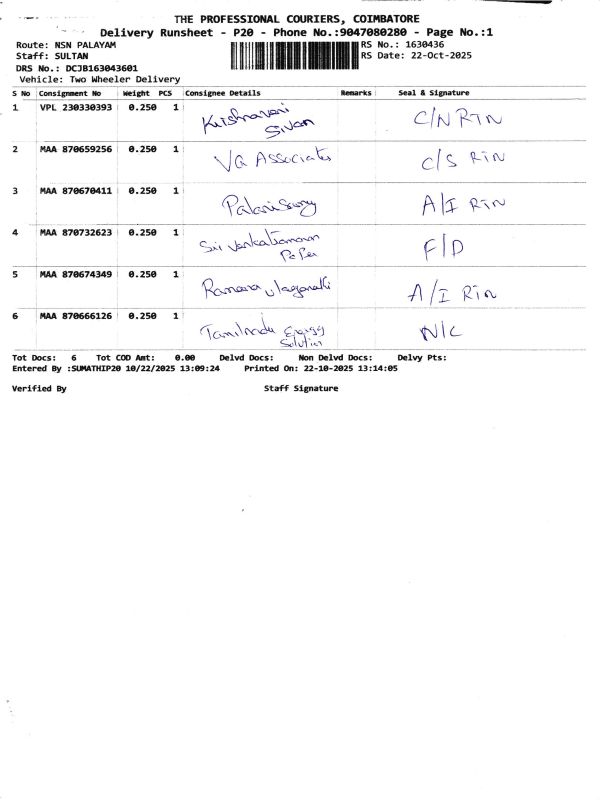 THE PROFESSIONAL COURIERS, COIMBATORE
Delivery Runsheet - P20 - Phone No.:9047080280 - Page No.:1
Route: NSN PALAYAM
RS No.: 1630436
Staff: SULTAN
RS Date: 22-Oct-2025
DRS No.: DCJB163043601
Vehicle: Two Wheeler Delivery
S No Consignment No Weight PCS Consignee Details Remarks Seal & Signature
1 VPL 230330393 0.250 1 Krishnaveni C/N RTN
Sivan
2 MAA 870659256 0.250 1 VG Associates C/S RTN
3 MAA 870670411 0.250 1 Palanisamy A/I RTN
4 MAA 870732623 0.250 1 Sri Venkatramana F/D
5 MAA 870674349 0.250 1 A/I RTN
6 MAA 870666126 0.250 1 Tamilnadu Energy N/C
Solution
Tot Docs: 6 Tot COD Amt: 0.00 Delvd Docs: Non Delvd Docs: Delvy Pts:
Entered By :SUMATHIP20 10/22/2025 13:09:24 Printed On: 22-10-2025 13:14:05
Verified By Staff Signature